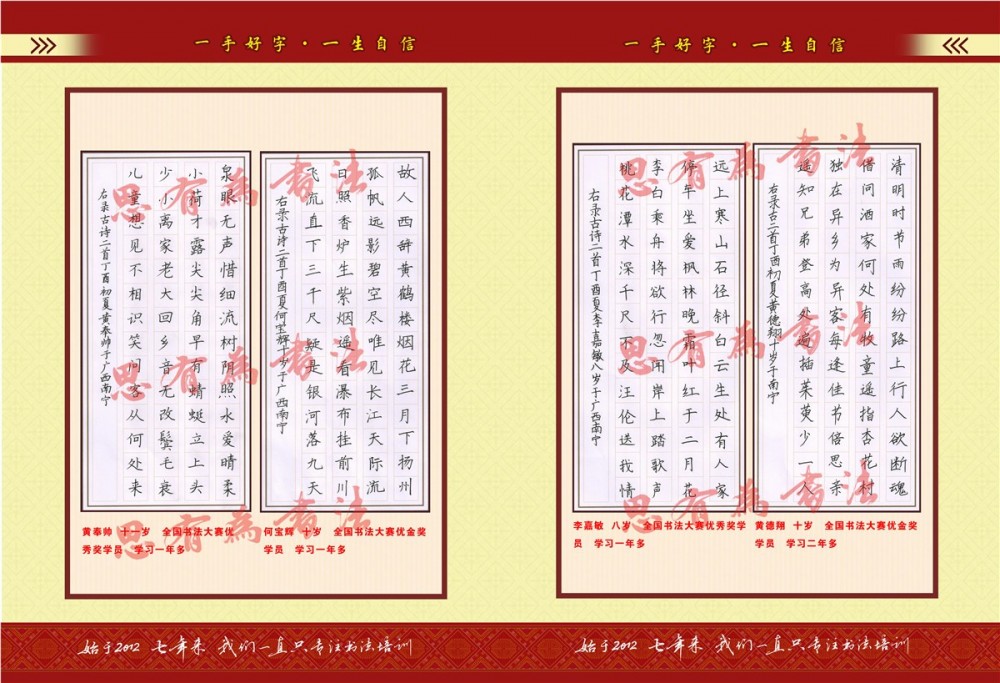 一手好字·一生自信
泉眼无声惜细流树阴照水爱晴柔
小荷才露尖尖角早有蜻蜓立上头
少小离家老大回乡音无改鬓毛衰
儿童想见不相识笑问客从何处来
右录古诗二首丁酉初夏黄奉帅于广西南宁
故人西辞黄鹤楼烟花三月下扬州
孤帆远影碧空尽唯见长江天际流
日照香炉生紫烟遥看瀑布挂前川
飞流直下三千尺疑是银河落九天
右录古诗二首丁酉夏何宝辉十岁于广西南宁
思有為書法
思有為書法
思有為書法
黄奉帅 十一岁 全国书法大赛优
秀奖学员 学习一年多
何宝辉 十岁 全国书法大赛优金奖
学员 学习一年多
始于2012 七年来 我们一直只专注书法培训
一手好字·一生自信
远上寒山石径斜白云生处有人家
停车坐爱枫林晚霜叶红于二月花
李白乘舟将欲行忽闻岸上踏歌声
桃花潭水深千尺不及汪伦送我情
右录古诗二首丁酉夏李嘉敏八岁于广西南宁
清明时节雨纷纷路上行人欲断魂
借问酒家何处有牧童遥指杏花村
独在异乡为异客每逢佳节倍思亲
遥知兄弟登高处遍插茱萸少一人
右录古二首丁酉初夏黄德翔十岁于南宁
思有為書法
思有為書法
思有為書法
李嘉敏 八岁 全国书法大赛优秀奖学
员 学习一年多
黄德翔 十岁 全国书法大赛优金奖
学员 学习二年多
始于2012 七年来 我们一直只专注书法培训